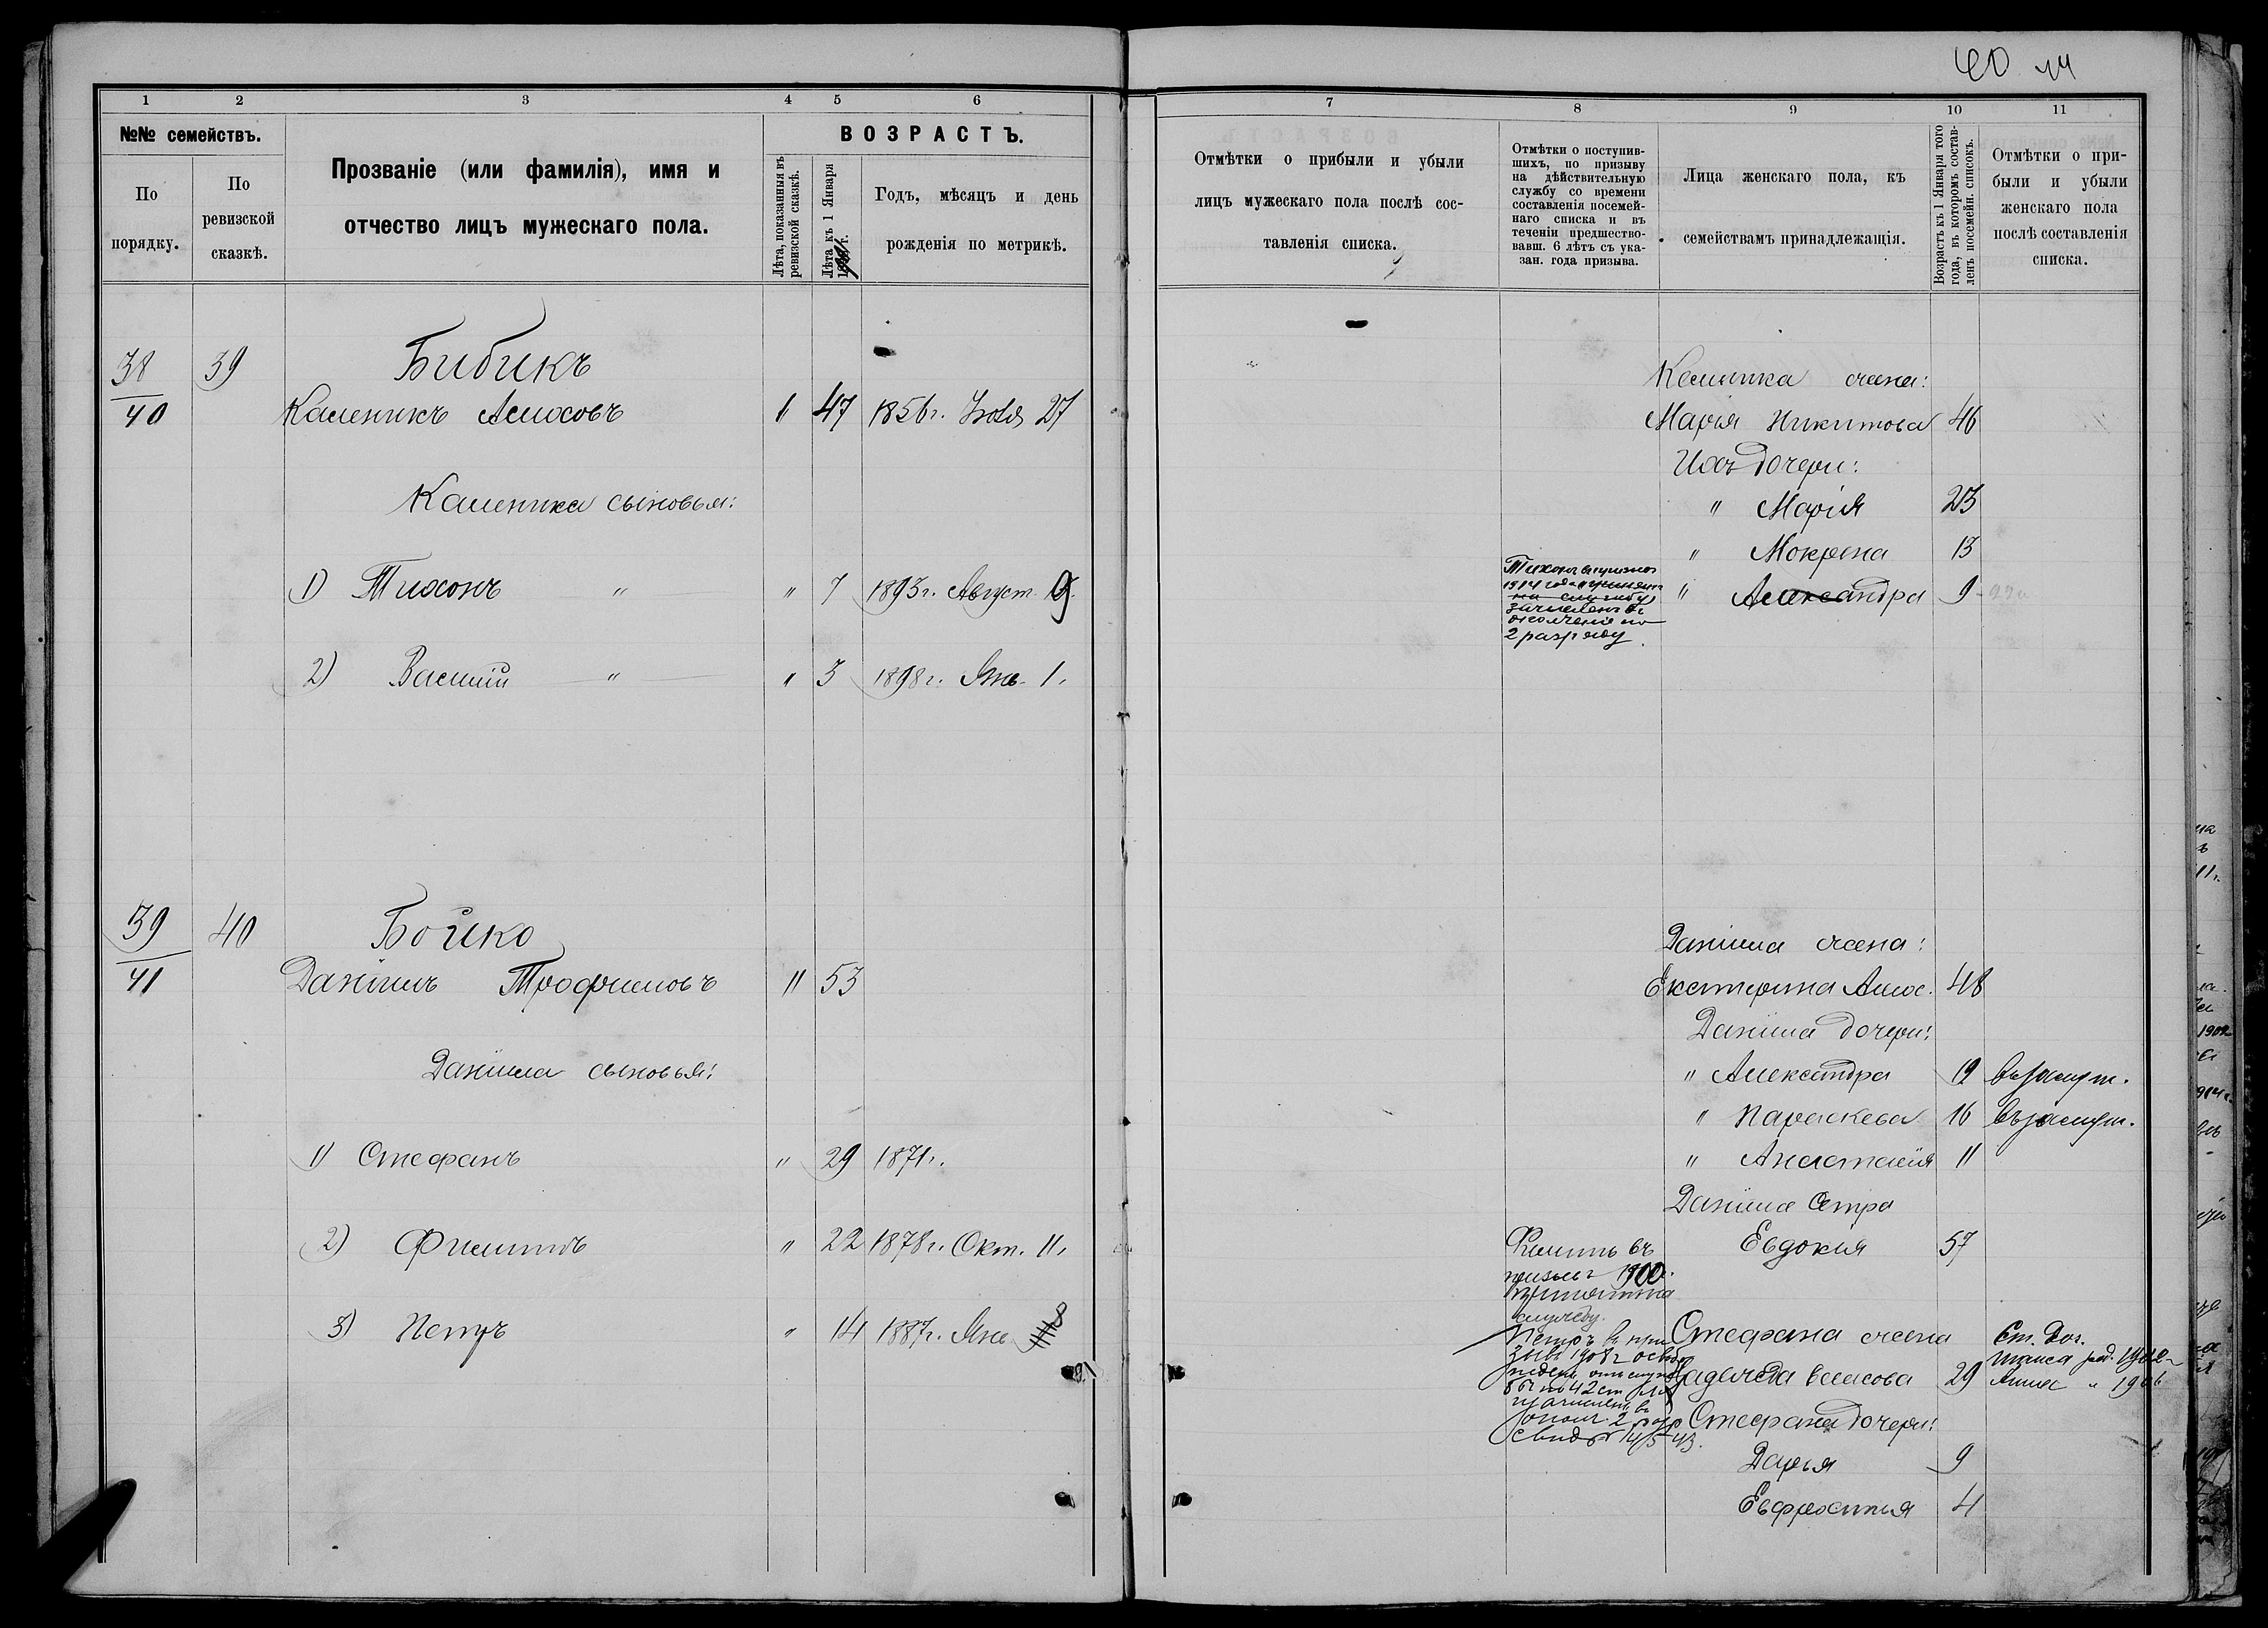 40 44
1 2 3 4 5 6
№№ семействъ.
По порядку.
По ревизской сказкѣ.
Прозваніе (или фамилія), имя и
отчество лицъ мужескаго пола.
ВОЗРАСТЪ.
Лѣта, показанныя въ
ревизской сказкѣ.
Лѣта къ 1 Января
Годъ, мѣсяцъ и день
рожденія по метрикѣ.
38 39 Бибикъ
40 Каленикъ Амосовъ " 47 1856 г. Іюля 27
Каленика сыновья:
1) Тихонъ " " 7 1893 г. Август.
2) Василій " " 3 1898 г. Янв. 1.
39 40 Бойко
41 Даніилъ Трофимовъ " 53
Даніила сыновья:
1) Стефанъ " 29 1871 г.
2) Филиппъ " 22 1878 г. Окт. 11.
3) Петръ " 14 1887 г. Янв.
7 8 9 10 11
Отмѣтки о прибыли и убыли
лицъ мужескаго пола послѣ сос-
тавленія списка.
Отмѣтки о поступив-
шихъ, по призыву
на дѣйствительную
службу со времени
составленія посемей-
наго списка и въ
теченіи предшество-
вавш. 6 лѣтъ съ ука-
зан. года призыва.
Лица женскаго пола, къ
семействамъ принадлежащія.
Возрастъ къ 1 Января того
года, въ которомъ состав-
ленъ посемейн. списокъ.
Отмѣтки о при-
были и убыли
женскаго пола
послѣ составленія
списка.
Каленика жена:
Марія Никитова 46
Ихъ дочери:
" Марія 23
" Мокрина 13
" Александра 9
Тихонъ
1914 года
на службу
зачисленъ въ
ополченіе по
2 разряду.
Даніила жена:
Екатерина Амос. 48
Даніила дочери:
" Александра 19 въ замуж.
" Параскева 16 въ замуж.
" Анастасія 11
Даніила Сестра
Евдокія 57
Филиппъ въ
призывъ 1900 г.
принятъ на
службу.
Петръ въ при-
зывъ 1908 г.
42 ст.
зачисленъ въ
ополч. 2 разр.
Стефана жена
Власова 29
Ст. Доч.
род. 1902
Анна " 1906
Стефана дочери:
Дарья 9
Евфросинья 4